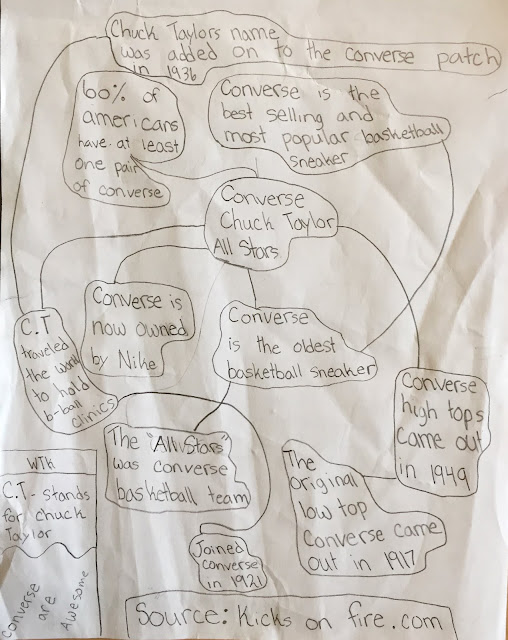 Chuck Taylors name
was added on to the converse patch
in 1936
60% of
americans
have at least
one pair
of converse
Converse is the
best selling and
most popular basketball
sneaker
Converse
Chuck Taylor
All Stars
C.T
traveled
the world
to hold
b-ball
clinics
Converse is
now owned
by Nike
Converse
is the oldest
basketball sneaker
Converse
high tops
came out
in 1949
The "All Stars"
was converse
basketball team
The
original
low top
Converse came
out in 1917
Joined
converse
in 1921
WTK
C.T- stands
for chuck
Taylor
converse
are
Awesome
Source: Kicks on fire.com